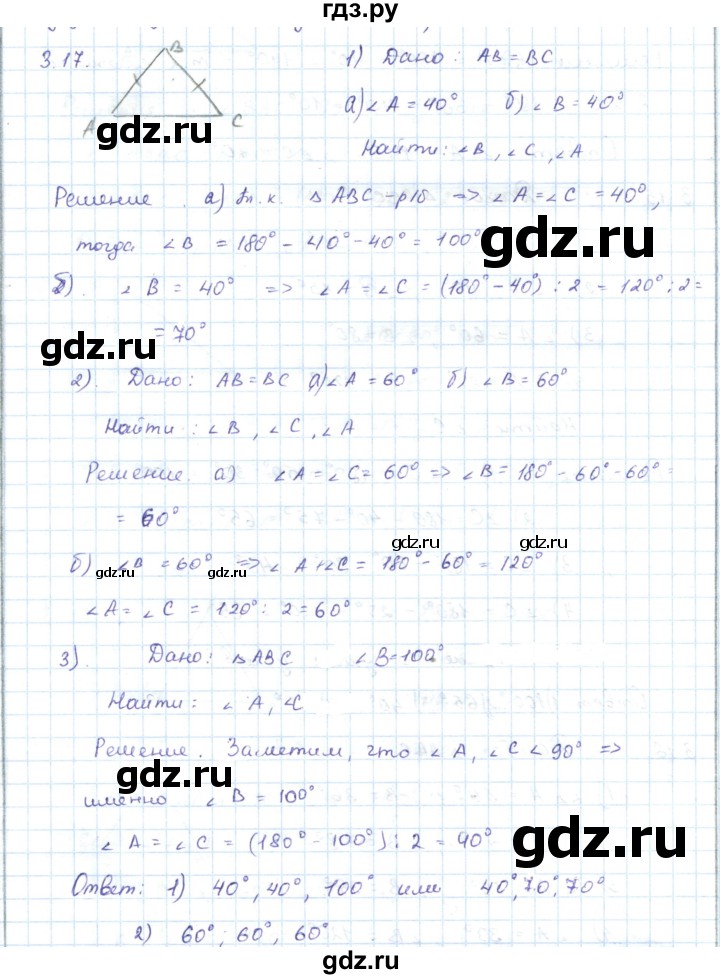 гдз.ру
3.17.
B
A
C
1) Дано: AB = BC
a) ∠A = 40° б) ∠B = 40°
Найти: ∠B, ∠C, ∠A
gdz.ru
Решение. a) т.к. △ABC - р/б => ∠A = ∠C = 40°,
тогда ∠B = 180° - 40° - 40° = 100°
gdz.ru
б). ∠B = 40° => ∠A = ∠C = (180° - 40°) : 2 = 120° : 2 =
= 70°
gdz.ru
2). Дано: AB = BC a) ∠A = 60° б) ∠B = 60°
Найти: ∠B, ∠C, ∠A
gdz.ru
Решение. a) ∠A = ∠C = 60° => ∠B = 180° - 60° - 60° =
= 60°
gdz.ru gdz.ru
б) ∠B = 60° => ∠A + ∠C = 180° - 60° = 120°
gdz.ru gdz.ru
∠A = ∠C = 120° : 2 = 60°
3). Дано: △ABC ∠B = 100°
Найти: ∠A, ∠C
Решение. Заметим, что ∠A, ∠C < 90° =>
gdz.ru
именно ∠B = 100°
∠A = ∠C = (180° - 100°) : 2 = 40°
gdz.ru
Ответ: 1) 40°, 40°, 100° или 40°, 70°, 70°
2) 60°; 60°, 60°
gdz.ru